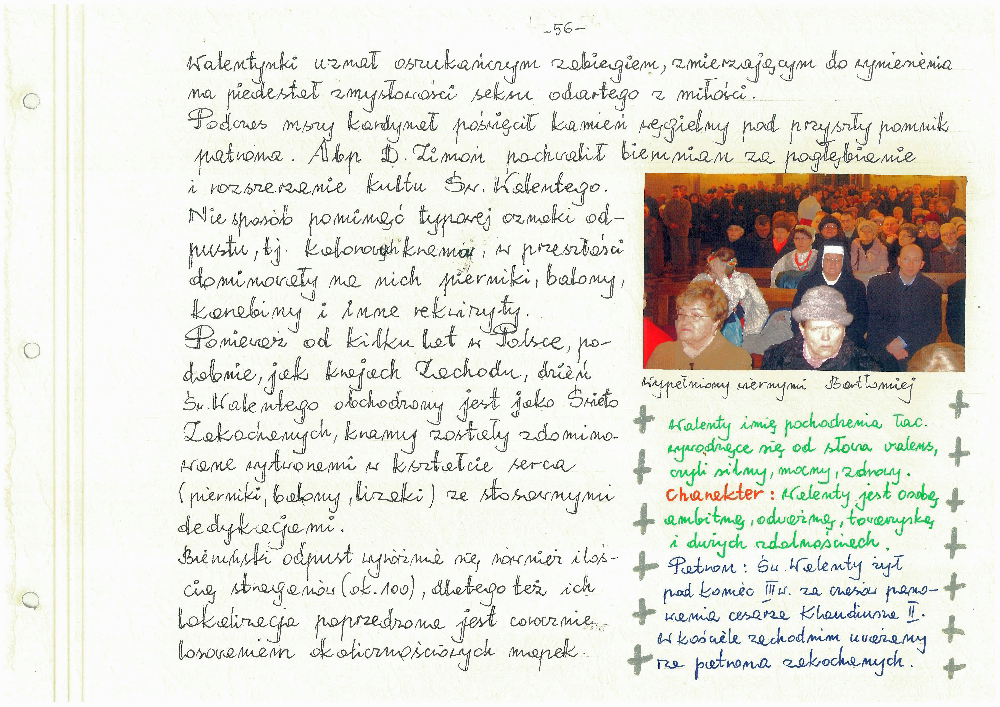 -56-
Walentynki uznał oszukańczym zabiegiem, zmierzającym do wyniesienia
na piedestał zmysłowości seksu odartego z miłości.
Podczas mszy kardynał poświęcił kamień węgielny pod przyszły pomnik
patrona. Abp D. Zimoń pochwalił biernian za pogłębianie
i rozszerzanie kultu Św. Walentego.
Nie sposób pominąć typowej oznaki od-
pustu, tj. kolorowych kramów, w przeszłości
dominowały na nich pierniki, balony,
karabiny i inne rekwizyty.
Ponieważ od kilku lat w Polsce, po-
dobnie, jak krajach Zachodu, dzień
Św. Walentego obchodzony jest jako Święto
Zakochanych, kramy zostały zdomino-
wane wytworami w kształcie serca
(pierniki, balony, lizaki) ze stosownymi
dedykacjami.
Bieruński odpust wyróżnia się również iloś-
cią straganów (ok. 100), dlatego też ich
lokalizacja poprzedzona jest corocznie
losowaniem okolicznościowych mapek.
Wypełniony wiernymi Bartłomiej
Walenty imię pochodzenia łac.
wywodzące się od słowa valens,
czyli silny, mocny, zdrowy.
Charakter: Walenty jest osobą
ambitną, odważną, towarzyską
i dużych zdolnościach.
Patron: Św. Walenty żył
pod koniec III w. za czasów pano-
wania cesarza Klaudiusza II.
W kościele zachodnim uważany
za patrona zakochanych.